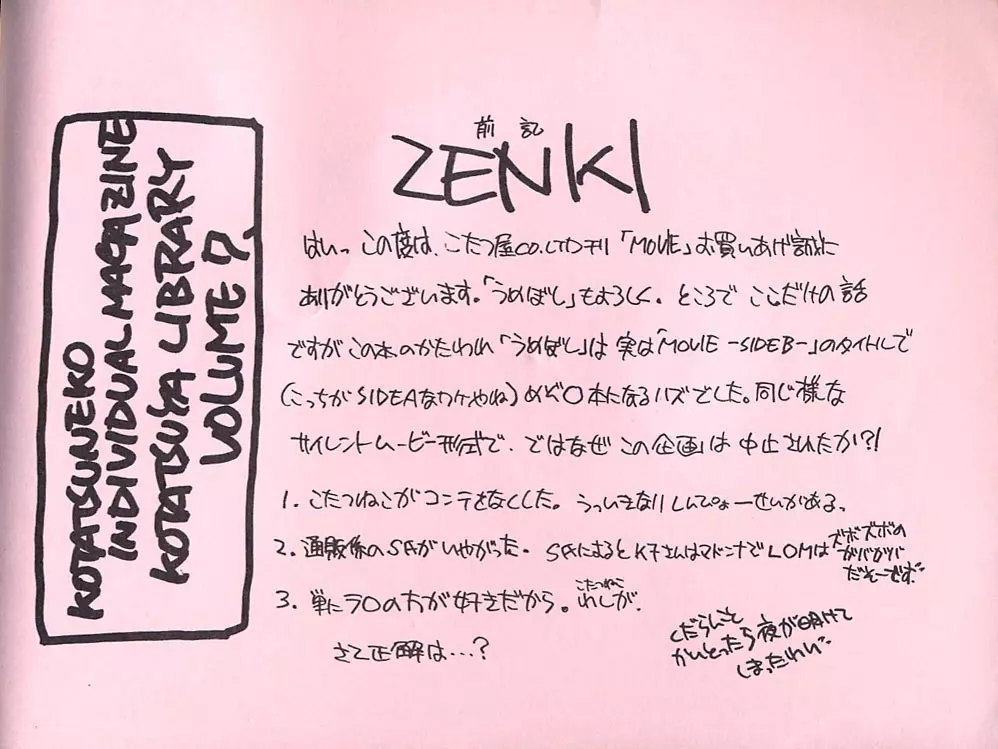 KOTATSUNEKO
INDIVIDUAL MAGAZINE
KOTATSUYA LIBRARY
VOLUME 7.
前記
ZENKI
はいっ この度は、こたつ屋CO.LTD刊「MOVIE」お買いあげ誠に
ありがとうございます。「うめぼし」もよろしく. ところで ここだけの話
ですが この本のかたわれ「うめぼし」は 実は「MOVIE -SIDE B-」のタイトルで
(こっちがSIDE Aなワケやね) めぞ〇本になるハズでした。同じ様な
サイレントムービー形式で. ではなぜ この企画は 中止されたか?!
1. こたつねこがコンテをなくした。 うっいきなりしんぴょーせいがある、
2. 通販係のS氏がいやがった. S氏によるとK子さんはマドンナでLOMは
ズボズボの
ガバガバ
だそーです。
3. 単にラ〇の方が好きだから。わしが.
こたつねこ
さて正解は…?
くだらんこと
かいとったら夜が明けて
しまったわい